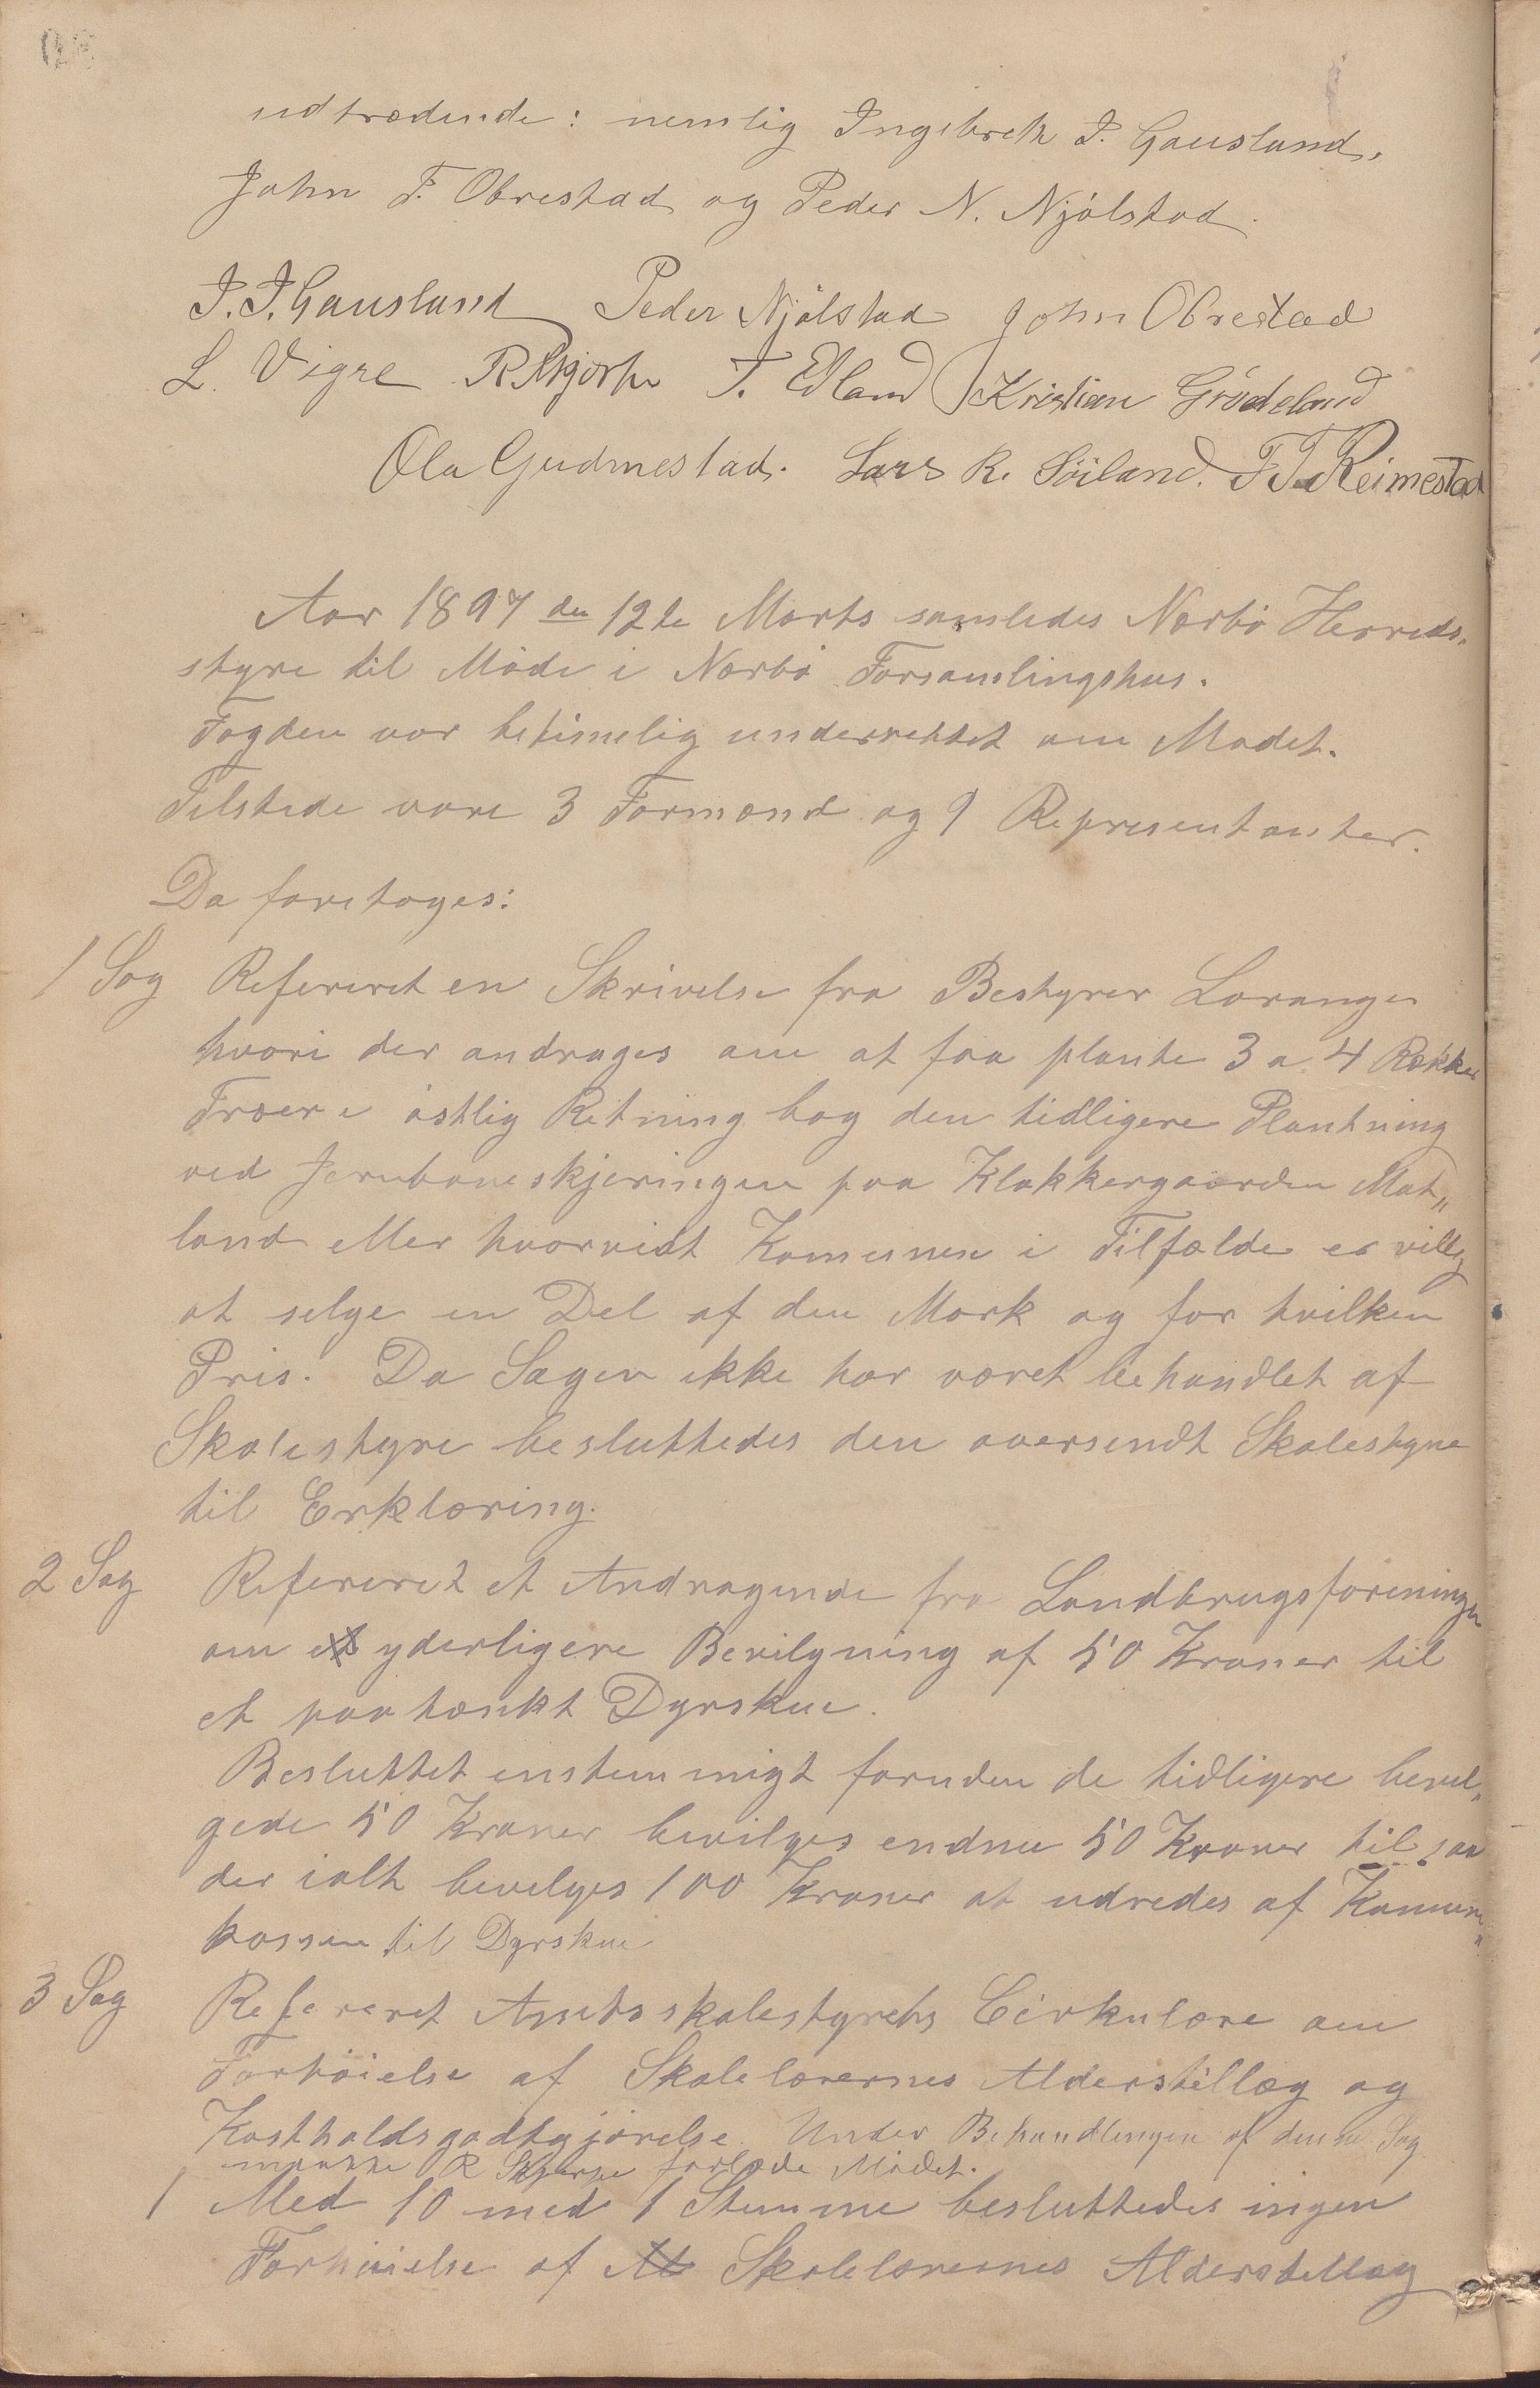 udtrædende: nemlig Ingebreth I. Gausland,
John T. Obrestad og Peder N. Njølstad.
I. I. Gausland Peder Njølstad John Obrestad
L. Vigre R Skjærpe T. Edland Kristian Grødeland
Ola Gudmestad. Lars R. Söiland. T T. Reimestad
Aar 1897 den 12te Marts samledes Nærbø Herreds„
styre til Møde i Nærbø Forsamlingshus.
Fogden var betimelig underrettet om Mødet.
Tilstede vare 3 Formænd og 9 Representanter.
Da foretoges:
1 Sag Refereret en Skrivelse fra Bestyrer Lorange
hvori der andrages om at faa plante 3 a 4 Rækker
Træer i østlig Retning bag den tidligere Plantning
ved Jernbaneskjeringen paa Klokkergaarden Mot„
land eller hvorvidt Komunen i Tilfælde er villig
at selge en Del af den Mark og for hvilken
Pris. Da Sagen ikke har været behandlet af
Skolestyre besluttedes den oversendt Skolestyre
til Erklæring.
2 Sag Refereret et Andragende fra Landbrugsforeningen
om yderligere Bevilgning af 50 Kroner til
et paatænkt Dyrskue.
Besluttet enstemmigt foruden de tidligere bevil„
gede 50 Kroner bevilges endnu 50 Kroner til saa
der ialt bevelges 100 Kroner at udredes af Komune„
kassen til Dyrskue
3 Sag Refereret Amtsskolestyrets Cirkulære om
Forhøielse af Skolelærernes Alderstillæg og
Kostholdsgodtgjørelse. Under Behandlingen af denne Sag
maatte R Skjærpe forlade Mødet.
1 Med 10 med 1 Stemme besluttedes ingen
Forhøielse af Skolelærernes Alderstillæg